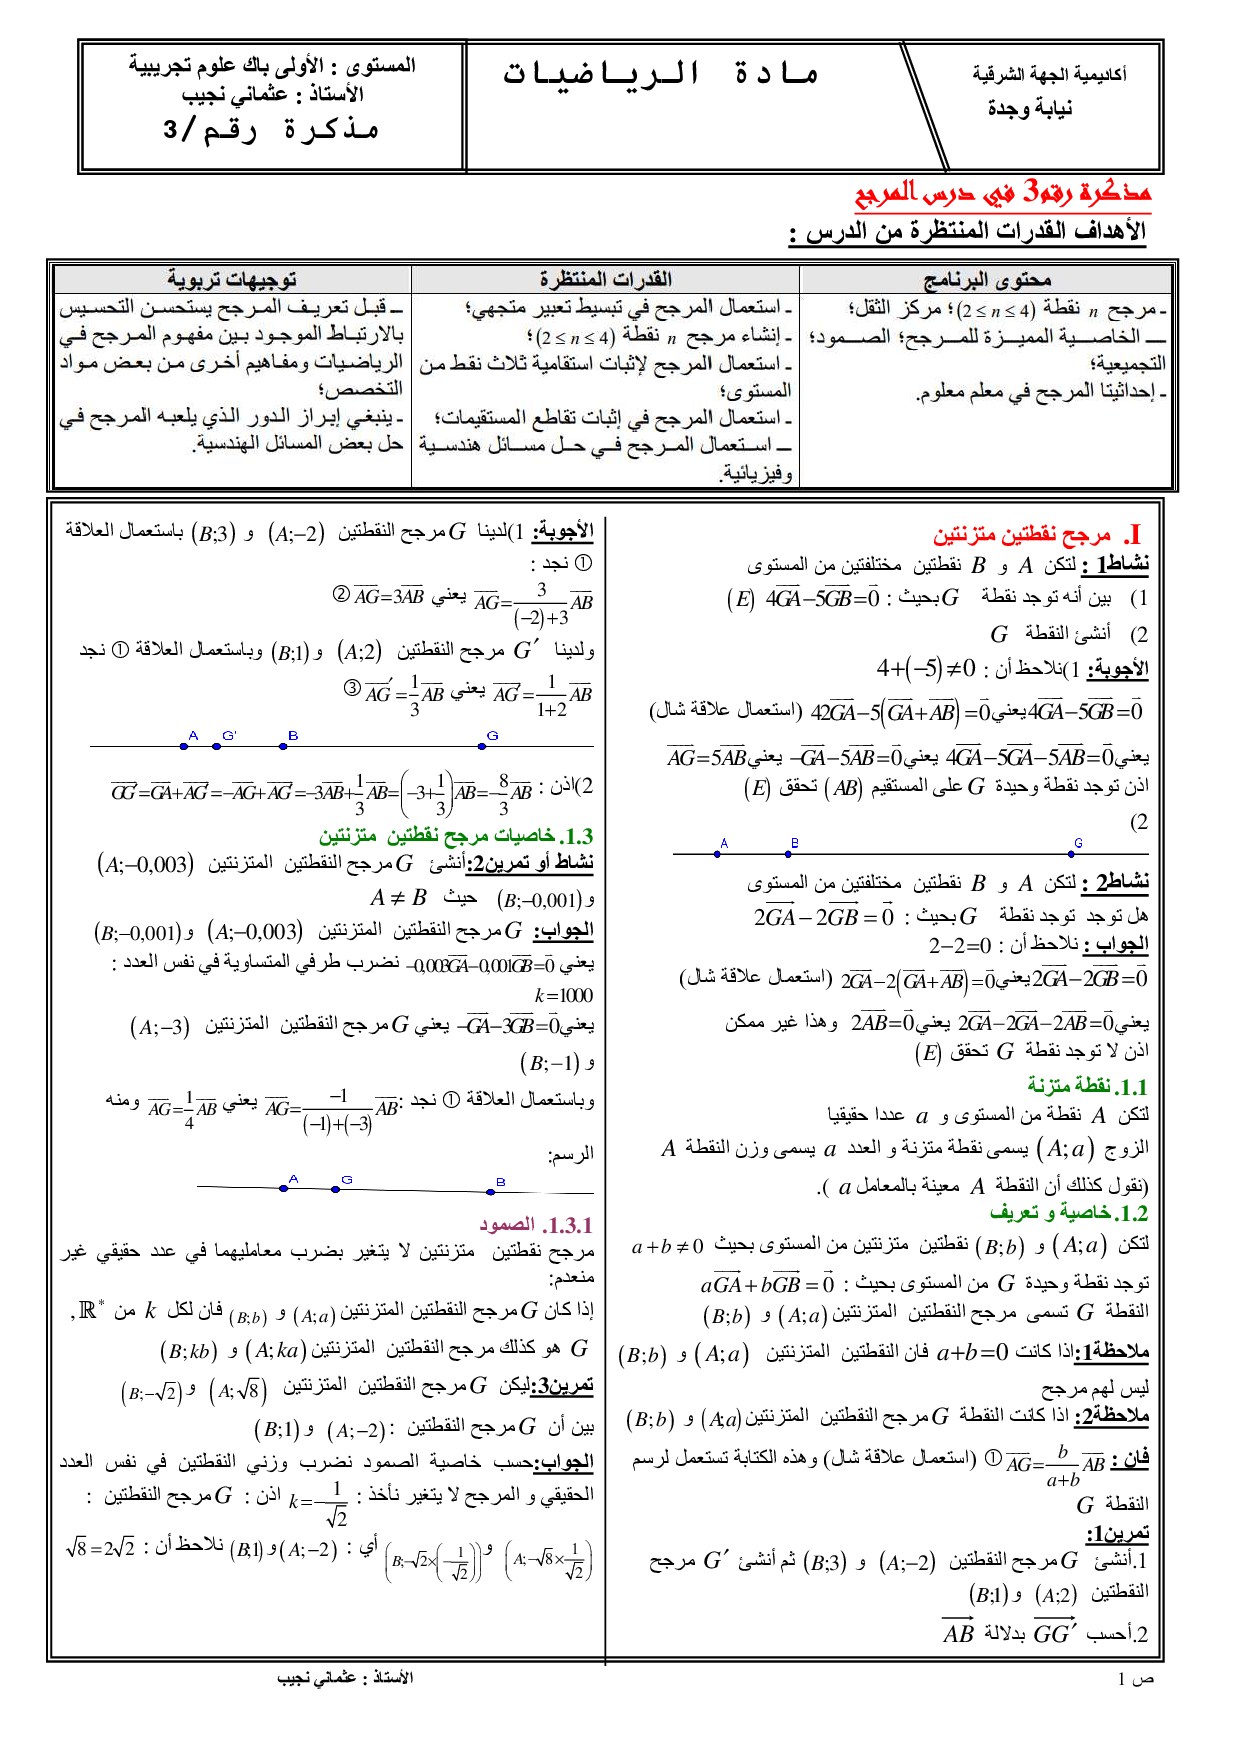 أكاديمية الجهة الشرقية
نيابة وجدة
مــادة الــريــاضيــات
المستوى : الأولى باك علوم تجريبية
الأستاذ : عثماني نجيب
مــذكــرة رقــم/3
مذكرة رقم3 في درس المرجح
الأهداف القدرات المنتظرة من الدرس :
محتوى البرنامج
ـ مرجح n نقطة (2 ≤ n ≤ 4)؛ مركز الثقل؛
ـــ الخاصــية المميــزة للمــرجح؛ الصــمود؛
التجميعية؛
ـ إحداثيتا المرجح في معلم معلوم.
القدرات المنتظرة
ـ استعمال المرجح في تبسيط تعبير متجهي؛
ـ إنشاء مرجح n نقطة (2 ≤ n ≤ 4)؛
ـ استعمال المرجح لإثبات استقامية ثلاث نقط من
المستوى؛
ـ استعمال المرجح في إثبات تقاطع المستقيمات؛
ــ استعمال المرجح في حل مسائل هندسية
وفيزيائية.
توجيهات تربوية
ــ قبل تعريف المرجح يستحسن التحسيس
بالارتباط الموجود بين مفهوم المرجح في
الرياضيات ومفاهيم أخرى من بعض مواد
التخصص؛
ـ ينبغي إبراز الدور الذي يلعبه المرجح في
حل بعض المسائل الهندسية.
I. مرجح نقطتين متزنتين
نشاط1 : لتكن A و B نقطتين مختلفتين من المستوى
1) بين أنه توجد نقطة G بحيث : 4GA−5GB=0 (E)
2) أنشئ النقطة G
الأجوبة: 1)نلاحظ أن : 4+(−5)≠0
4GA−5GB=0 يعني 42GA−5(GA+AB)=0 (استعمال علاقة شال)
يعني 4GA−5GA−5AB=0 يعني −GA−5AB=0 يعني AG=5AB
اذن توجد نقطة وحيدة G على المستقيم (AB) تحقق (E)
2)
A B G
نشاط2 : لتكن A و B نقطتين مختلفتين من المستوى
هل توجد توجد نقطة G بحيث : 2GA−2GB=0
الجواب : نلاحظ أن : 2−2=0
2GA−2GB=0 يعني 2GA−2(GA+AB)=0 (استعمال علاقة شال)
يعني 2GA−2GA−2AB=0 يعني 2AB=0 وهذا غير ممكن
اذن لا توجد نقطة G تحقق (E)
1.1. نقطة متزنة
لتكن A نقطة من المستوى و a عددا حقيقيا
الزوج (A;a) يسمى نقطة متزنة و العدد a يسمى وزن النقطة A
(نقول كذلك أن النقطة A معينة بالمعامل a ).
1.2. خاصية و تعريف
لتكن (A;a) و (B;b) نقطتين متزنتين من المستوى بحيث a+b≠0
توجد نقطة وحيدة G من المستوى بحيث : aGA+bGB=0
النقطة G تسمى مرجح النقطتين المتزنتين (A;a) و (B;b)
ملاحظة1:اذا كانت a+b=0 فان النقطتين المتزنتين (A;a) و (B;b)
ليس لهم مرجح
ملاحظة2: اذا كانت النقطة G مرجح النقطتين المتزنتين (A;a) و (B;b)
فان : AG=b/(a+b) AB ① (استعمال علاقة شال) وهذه الكتابة تستعمل لرسم
النقطة G
تمرين1:
1.أنشئ G مرجح النقطتين (A;−2) و (B;3) ثم أنشئ G′ مرجح
النقطتين (A;2) و (B;1)
2.أحسب GG′ بدلالة AB
الأجوبة: 1)لدينا G مرجح النقطتين (A;−2) و (B;3) باستعمال العلاقة
① نجد :
AG=3/((−2)+3) AB يعني AG=3AB ②
ولدينا G′ مرجح النقطتين (A;2) و (B;1) وباستعمال العلاقة ① نجد
AG′=1/(1+2) AB يعني AG′=1/3 AB ③
A G' B G
2)اذن : GG′=GA+AG′=−AG+AG′=−3AB+1/3 AB=(−3+1/3)AB=−8/3 AB
1.3. خاصيات مرجح نقطتين متزنتين
نشاط أو تمرين2:أنشئ G مرجح النقطتين المتزنتين (A;−0,003)
و (B;−0,001) حيث A ≠ B
الجواب: G مرجح النقطتين المتزنتين (A;−0,003) و (B;−0,001)
يعني −0,003GA−0,001GB=0 نضرب طرفي المتساوية في نفس العدد :
k=1000
يعني −GA−3GB=0 يعني G مرجح النقطتين المتزنتين (A;−3)
و (B;−1)
وباستعمال العلاقة ① نجد : AG=−1/((−1)+(−3)) AB يعني AG=1/4 AB ومنه
الرسم:
A G B
1.3.1. الصمود
مرجح نقطتين متزنتين لا يتغير بضرب معامليهما في عدد حقيقي غير
منعدم:
إذا كان G مرجح النقطتين المتزنتين (A;a) و (B;b) فان لكل k من ℝ* ,
G هو كذلك مرجح النقطتين المتزنتين (A;ka) و (B;kb)
تمرين3:ليكن G مرجح النقطتين المتزنتين (A;√8) و (B;−√2)
بين أن G مرجح النقطتين : (A;−2) و (B;1)
الجواب:حسب خاصية الصمود نضرب وزني النقطتين في نفس العدد
الحقيقي و المرجح لا يتغير نأخذ : k=−1/√2 اذن : G مرجح النقطتين :
(A;−√8×1/√2) و (B;−√2×(−1/√2)) أي : (A;−2) و (B;1) نلاحظ أن : √8=2√2
ص 1
الأستاذ : عثماني نجيب